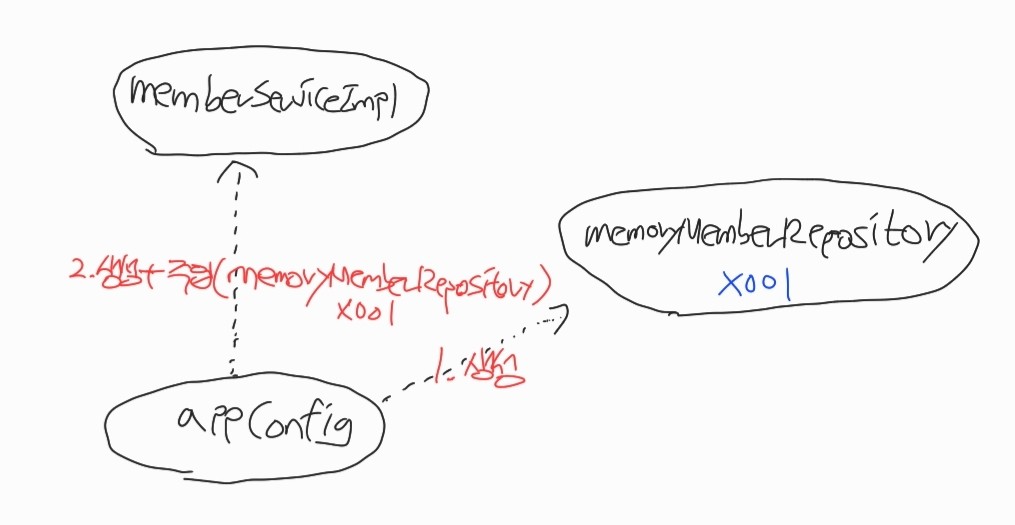 memberServiceImpl
memoryMemberRepository
x001
2.생성+주입(memoryMemberRepository)
x001
1.생성
appConfig